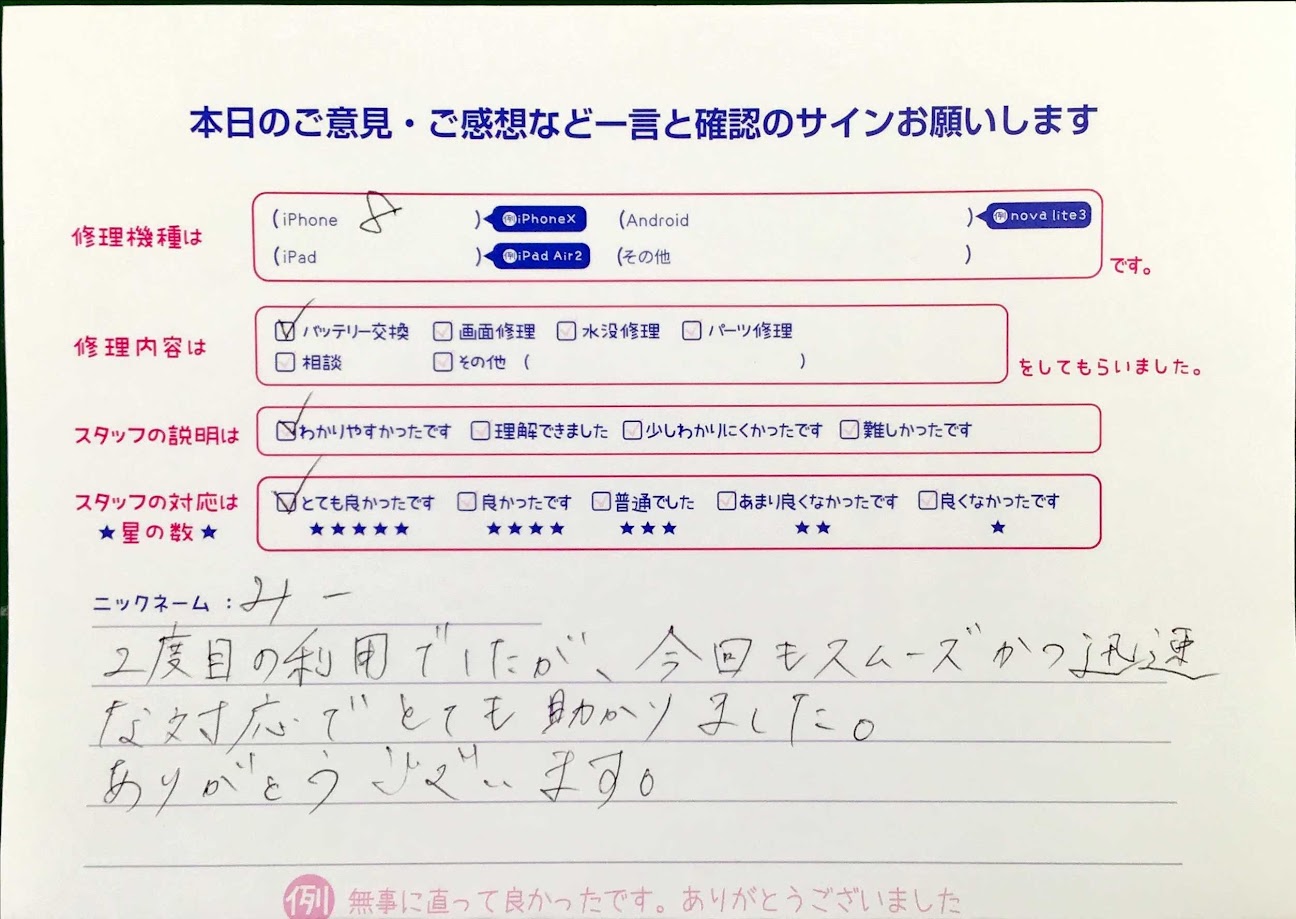 本日のご意見・ご感想など一言と確認のサインお願いします
修理機種は
(iPhone 8 ) 例iPhoneX (Android ) 例nova lite3
(iPad ) 例iPad Air2 (その他 )
です。
修理内容は
バッテリー交換 画面修理 水没修理 パーツ修理
相談 その他 ( )
をしてもらいました。
スタッフの説明は
わかりやすかったです 理解できました 少しわかりにくかったです 難しかったです
スタッフの対応は
★星の数★
とても良かったです 良かったです 普通でした あまり良くなかったです 良くなかったです
★★★★★ ★★★★ ★★★ ★★ ★
ニックネーム：みー
2度目の利用でしたが、今回もスムーズかつ迅速
な対応でとても助かりました。
ありがとうございます。
例 無事に直って良かったです。ありがとうございました